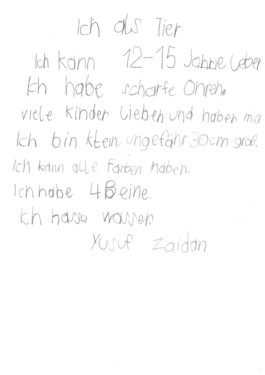 Ich als Tier
Ich kann 12-15 Jahre leben
Ich habe scharfe Ohren.
viele kinder lieben und haben mia
Ich bin klein ungefähr 30cm groß.
Ich kann alle Farben haben.
Ich habe 4 Beine.
Ich hasse wasser.
Yusuf Zaidan